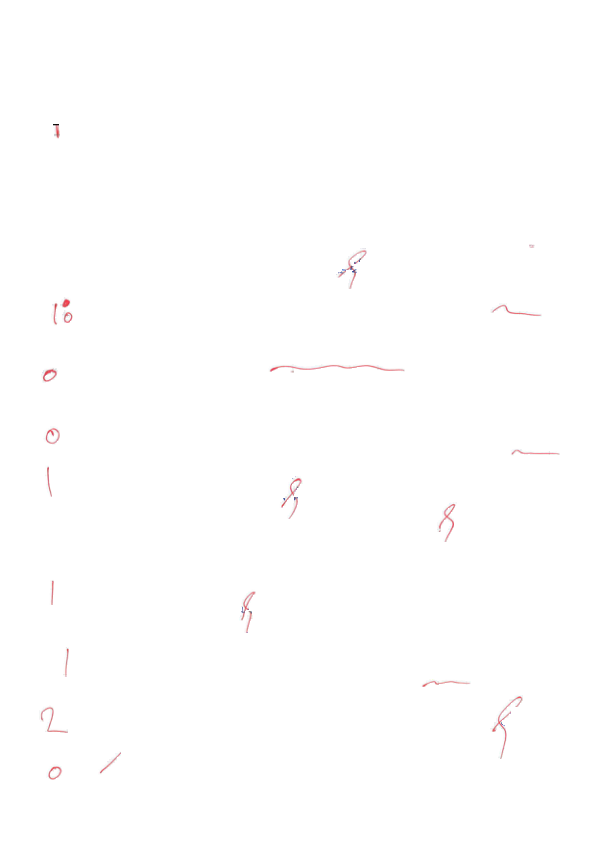 1
10
0
0
1
1
1
2
0